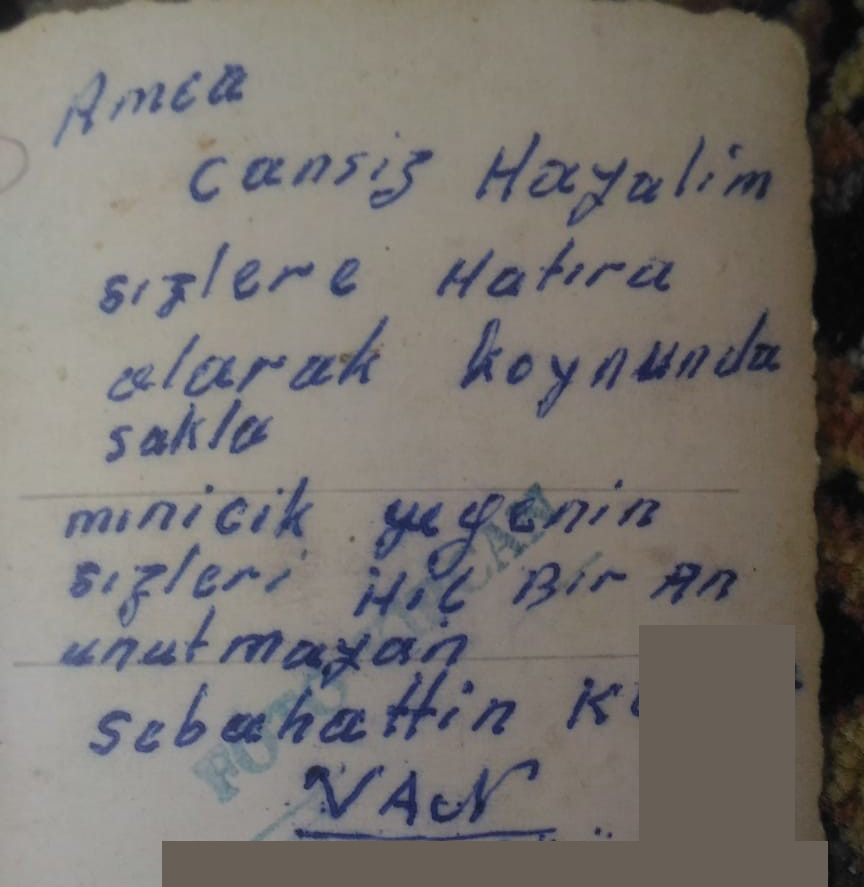 Amca
cansiz Hayalim
sızlere Hatıra
olarak koynunda
sakla
mınicik yeğenin
sızleri Hiç Bir An
unutmayan
sebahattin
VAN
FOTO